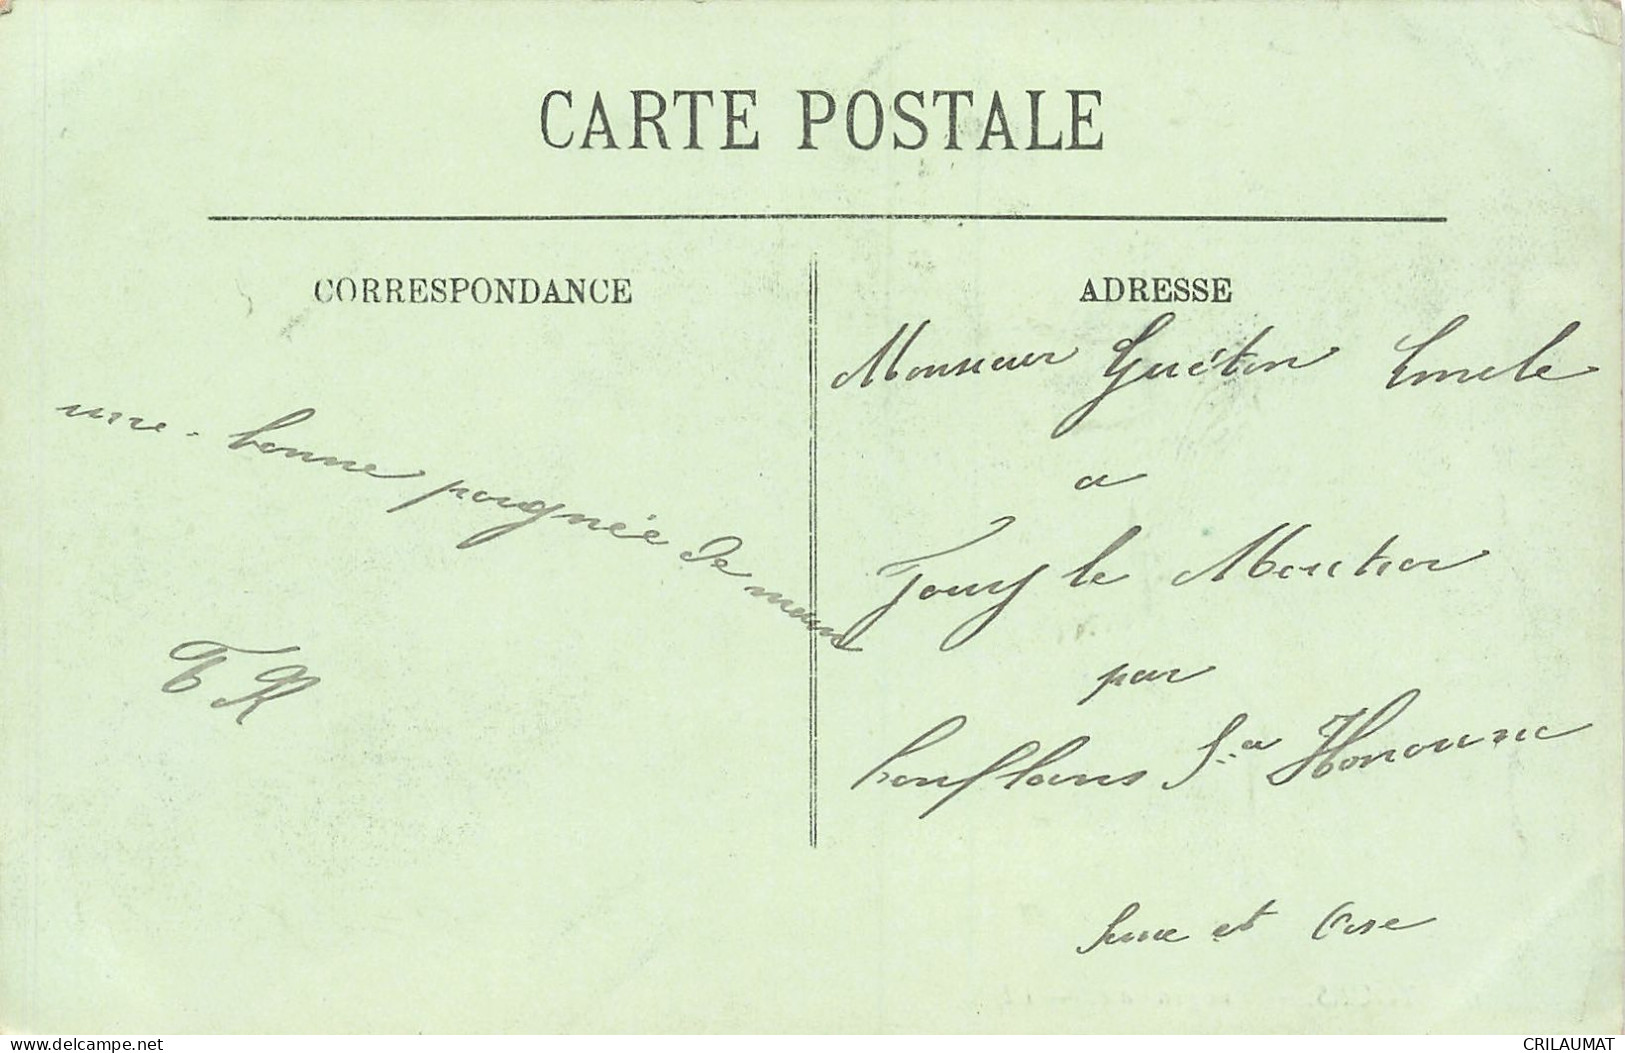 CARTE POSTALE
CORRESPONDANCE
une bonne poignée de main
ADRESSE
Monsieur Guéton Emile
a
Jouy le Moutier
par
Conflans Ste Honorine
Seine et Oise
www.delcampe.net
CRILAUMAT